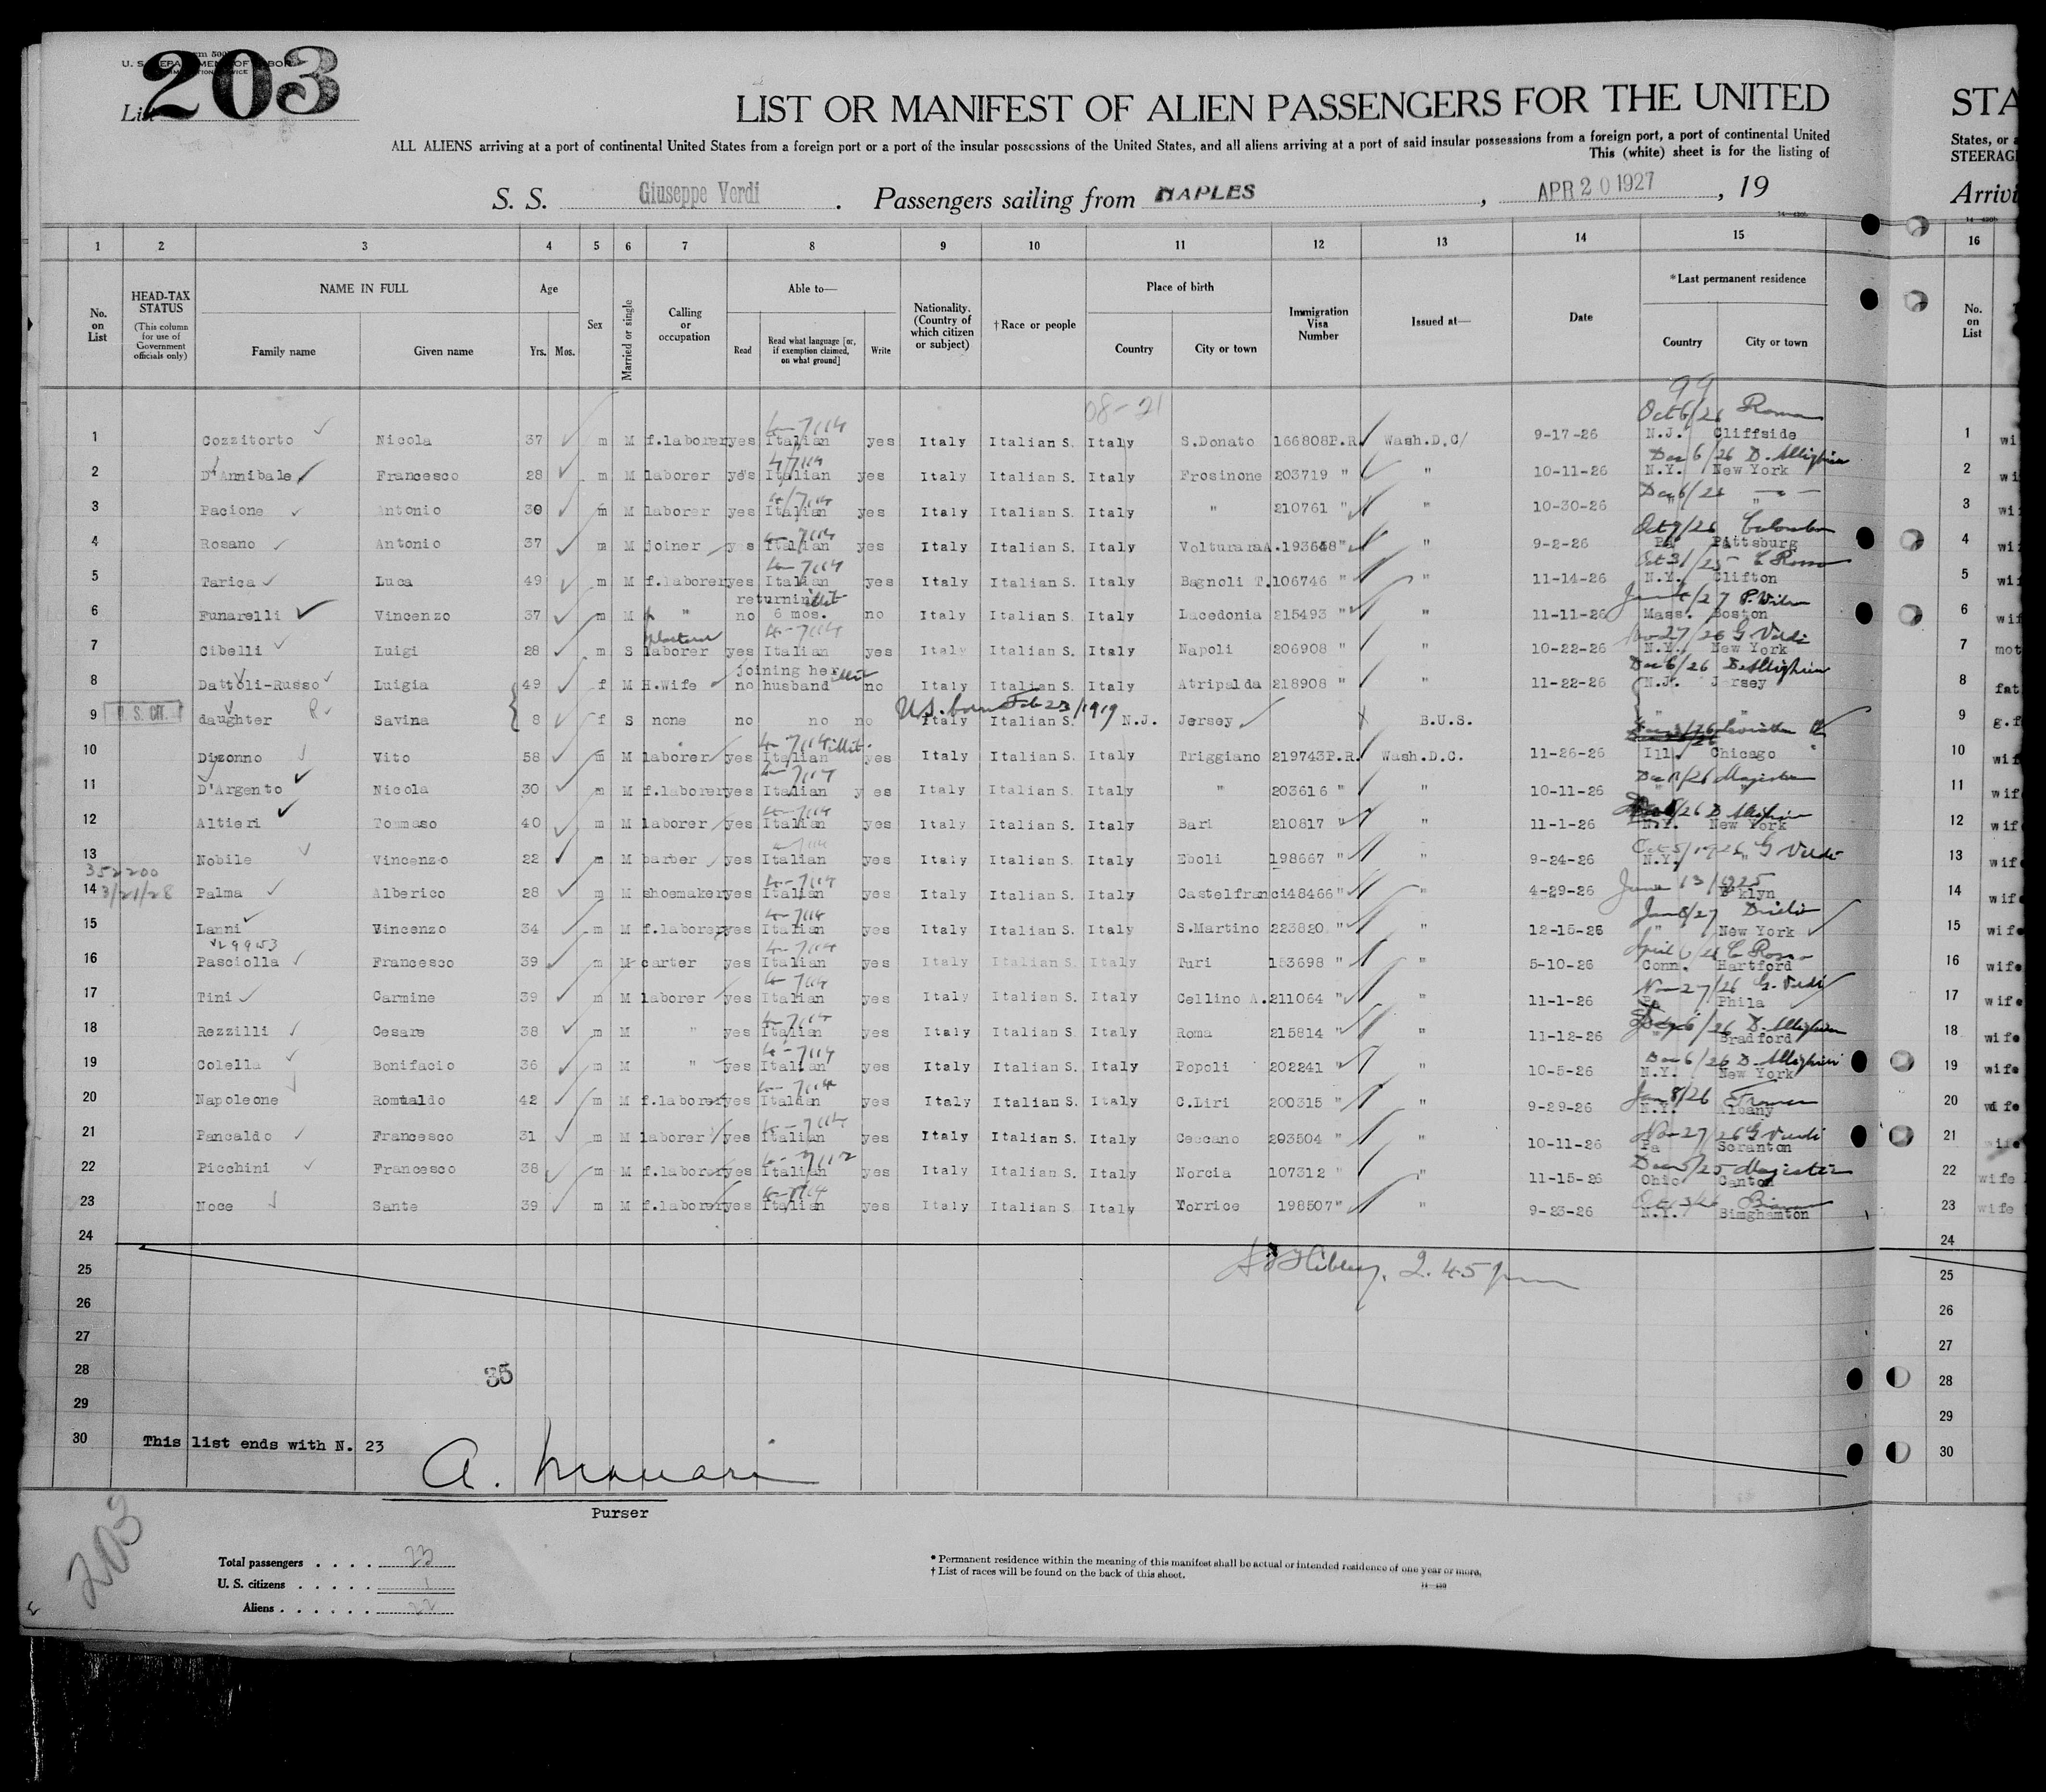 Form 500
U. S. DEPARTMENT OF LABOR
IMMIGRATION SERVICE
List 203
LIST OR MANIFEST OF ALIEN PASSENGERS FOR THE UNITED
ALL ALIENS arriving at a port of continental United States from a foreign port or a port of the insular possessions of the United States, and all aliens arriving at a port of said insular possessions from a foreign port, a port of continental United
This (white) sheet is for the listing of
S. S. Giuseppe Verdi . Passengers sailing from NAPLES , APR 20 1927 , 19
1 2 3 4 5 6 7 8 9 10 11 12 13 14 15
No. on List
HEAD-TAX STATUS (This column for use of Government officials only)
NAME IN FULL Family name Given name
Age Yrs. Mos.
Sex
Married or single
Calling or occupation
Able to— Read Read what language [or, if exemption claimed, on what ground] Write
Nationality. (Country of which citizen or subject)
†Race or people
Place of birth Country City or town
Immigration Visa Number
Issued at—
Date
*Last permanent residence Country City or town
99
08-21
Oct 6/26 Roma
1 Cozzitorto Nicola 37 m M f.laborer yes Italian yes Italy Italian S. Italy S.Donato 166808P.R. Wash.D.C/ 9-17-26 N.J. Cliffside
Dec 6/26 D. Allighieri
2 D'Annibale Francesco 28 m M laborer yes Italian yes Italy Italian S. Italy Frosinone 203719 " " 10-11-26 N.Y. New York
Dec 6/26
3 Pacione Antonio 30 m M laborer yes Italian yes Italy Italian S. Italy " 210761 " " 10-30-26 " "
Oct 9/26 Colombo
4 Rosano Antonio 37 m M joiner yes Italian yes Italy Italian S. Italy Volturara A. 193648" " 9-2-26 Pa Pittsburg
Oct 31/25 C Rosso
5 Tarica Luca 49 m M f.laborer yes Italian yes Italy Italian S. Italy Bagnoli T. 106746 " " 11-14-26 N.Y. Clifton
returning
6 Funarelli Vincenzo 37 m M " no 6 mos. no Italy Italian S. Italy Lacedonia 215493 " " 11-11-26 Mass. Boston
Nov 27/26 G Verdi
7 Cibelli Luigi 28 m S laborer yes Italian yes Italy Italian S. Italy Napoli 206908 " " 10-22-26 N.Y. New York
joining her
Dec 6/26 D Allighieri
8 Dattoli-Russo Luigia 49 f M H.wife no husband no Italy Italian S. Italy Atripalda 218908 " " 11-22-26 N.J. Jersey
U.S. born Feb 23/1919
9 U. S. CIT. daughter Savina 8 f S none no no no Italy Italian S. N.J. Jersey B.U.S. " "
10 Dizonno Vito 58 m M laborer yes Italian yes Italy Italian S. Italy Triggiano 219743P.R. Wash.D.C. 11-26-26 Ill. Chicago
11 D'Argento Nicola 30 m M f.laborer yes Italian yes Italy Italian S. Italy " 203616 " " 10-11-26 " "
12 Altieri Tommaso 40 m M laborer yes Italian yes Italy Italian S. Italy Bari 210817 " " 11-1-26 N.Y. New York
Oct 5/1926 G Verdi
13 Nobile Vincenzo 22 m M barber yes Italian yes Italy Italian S. Italy Eboli 198667 " " 9-24-26 N.Y. "
352200
3/21/28
June 13/1925
14 Palma Alberico 28 m M shoemaker yes Italian yes Italy Italian S. Italy Castelfranci 48466 " " 4-29-26 " B'klyn
Jan 8/27 Duilio
15 Lanni Vincenzo 34 m M f.laborer yes Italian yes Italy Italian S. Italy S.Martino 223820 " " 12-15-26 " New York
16 Pasciolla Francesco 39 m M carter yes Italian yes Italy Italian S. Italy Turi 153698 " " 5-10-26 Conn. Hartford
Nov 27/26 G. Verdi
17 Tini Carmine 39 m M laborer yes Italian yes Italy Italian S. Italy Cellino A. 211064 " " 11-1-26 Pa Phila
18 Rezzilli Cesare 38 m M " yes Italian yes Italy Italian S. Italy Roma 215814 " " 11-12-26 " Bradford
Dec 6/26 D. Allighieri
19 Colella Bonifacio 36 m M " yes Italian yes Italy Italian S. Italy Popoli 202241 " " 10-5-26 N.Y. New York
20 Napoleone Romualdo 42 m M f.laborer yes Italian yes Italy Italian S. Italy C.Liri 200315 " " 9-29-26 N.Y. Albany
Nov 27/26 G Verdi
21 Pancaldo Francesco 31 m M laborer yes Italian yes Italy Italian S. Italy Ceccano 203504 " " 10-11-26 Pa Scranton
22 Picchini Francesco 38 m M f.laborer yes Italian yes Italy Italian S. Italy Norcia 107312 " " 11-15-26 Ohio Canton
23 Noce Sante 39 m M f.laborer yes Italian yes Italy Italian S. Italy Torrice 198507" " 9-23-26 N.Y. Binghamton
24
2.45 pm
25
26
27
28
35
29
30 This list ends with N. 23
Purser
203
Total passengers . . . . 23
U. S. citizens . . . . . 1
Aliens . . . . . . 22
* Permanent residence within the meaning of this manifest shall be actual or intended residence of one year or more.
† List of races will be found on the back of this sheet.
14—430
STA
States, or a
STEERAG
Arrivi
16
No. on List
1 wi
2 wi
3 wi
4 wi
5 wi
6 wif
7 mot
8 fat
9 g.f
10 wif
11 wife
12 wif
13 wif
14 wife
15 wife
16 wife
17 wife
18 wife
19 wife
20 wife
21 wife
22 wife
23 wife
24
25
26
27
28
29
30